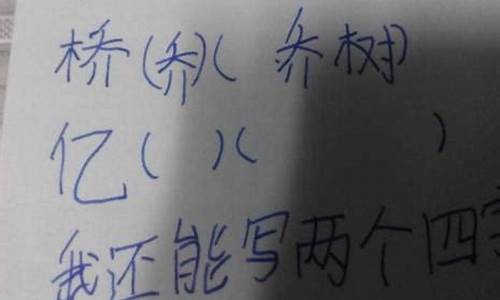 桥(乔)(乔树)
亿( )( )
我还能写两个四字